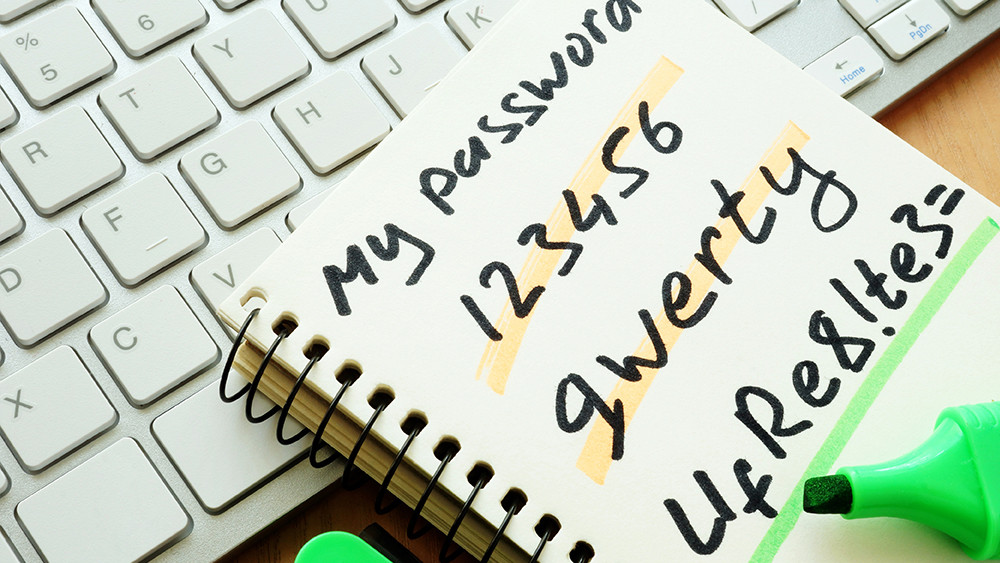 My password
123456
qwerty
UfRe8!te3=
%
5
6
T
Y
U
R
G
H
J
K
D
F
X
C
V
PgDn
Home